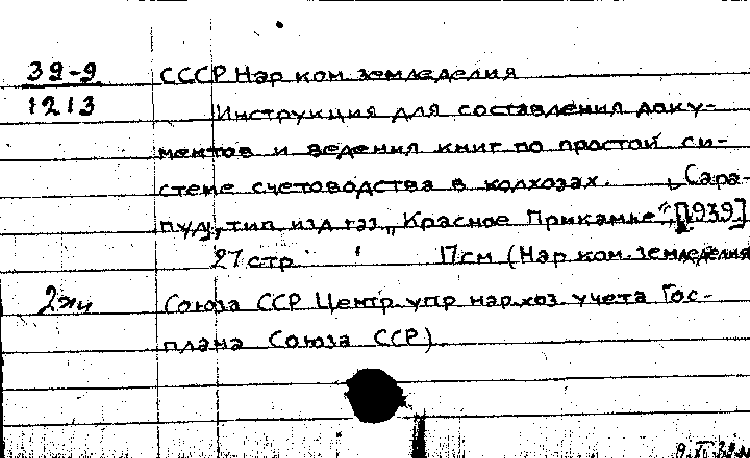 39-9 СССР Нар ком земледелия
1213 Инструкция для составления доку-
ментов и ведения книг по простой си-
стеме счетоводства в колхозах. Сара-
пул, тип изд газ „Красное Прикамье", [1939]
27 стр 17 см (Нар ком. земледелия
2 Союза ССР Центр. упр нар.хоз. учета Гос-
плана Союза ССР)